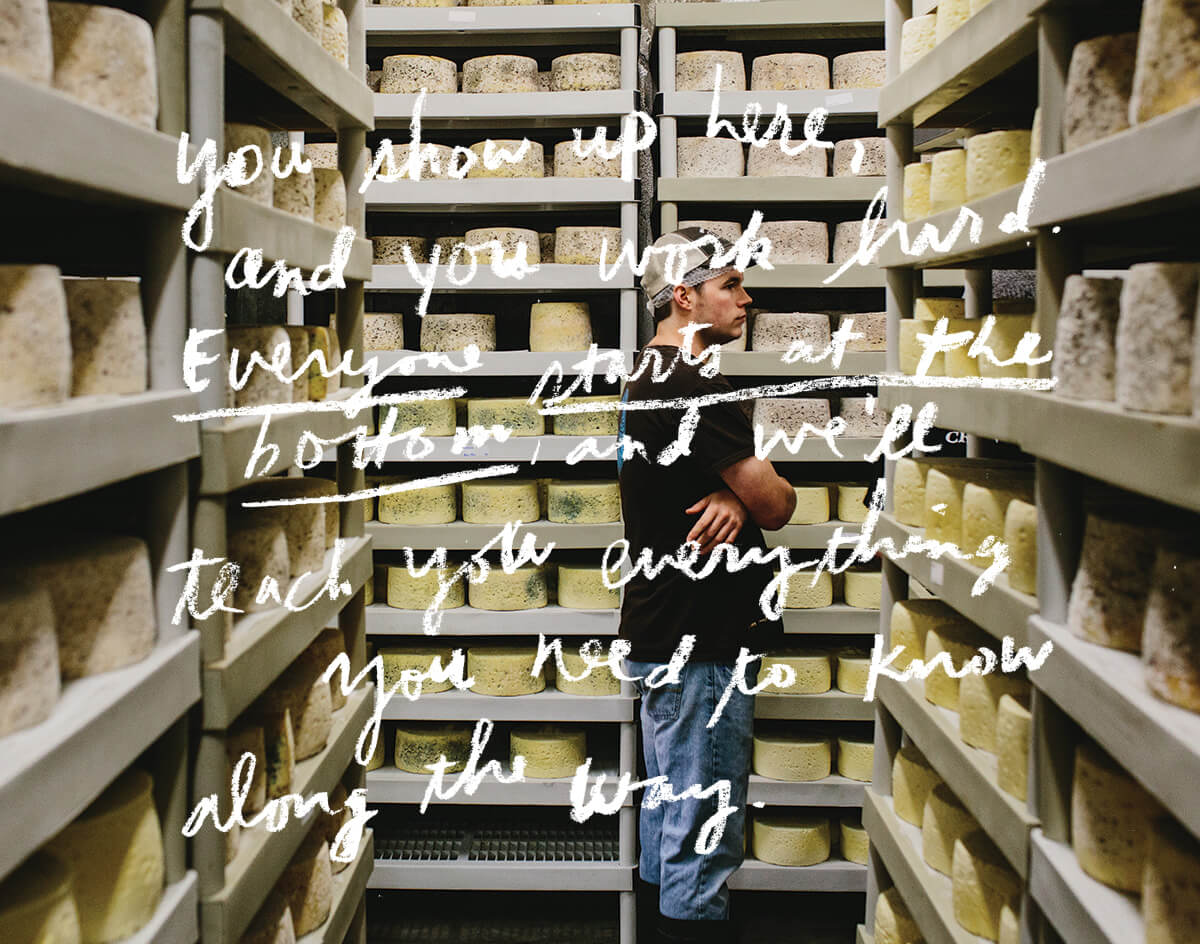 you show up here,
and you work hard.
Everyone starts at the
bottom, and we'll
teach you everything
you need to know
along the way.